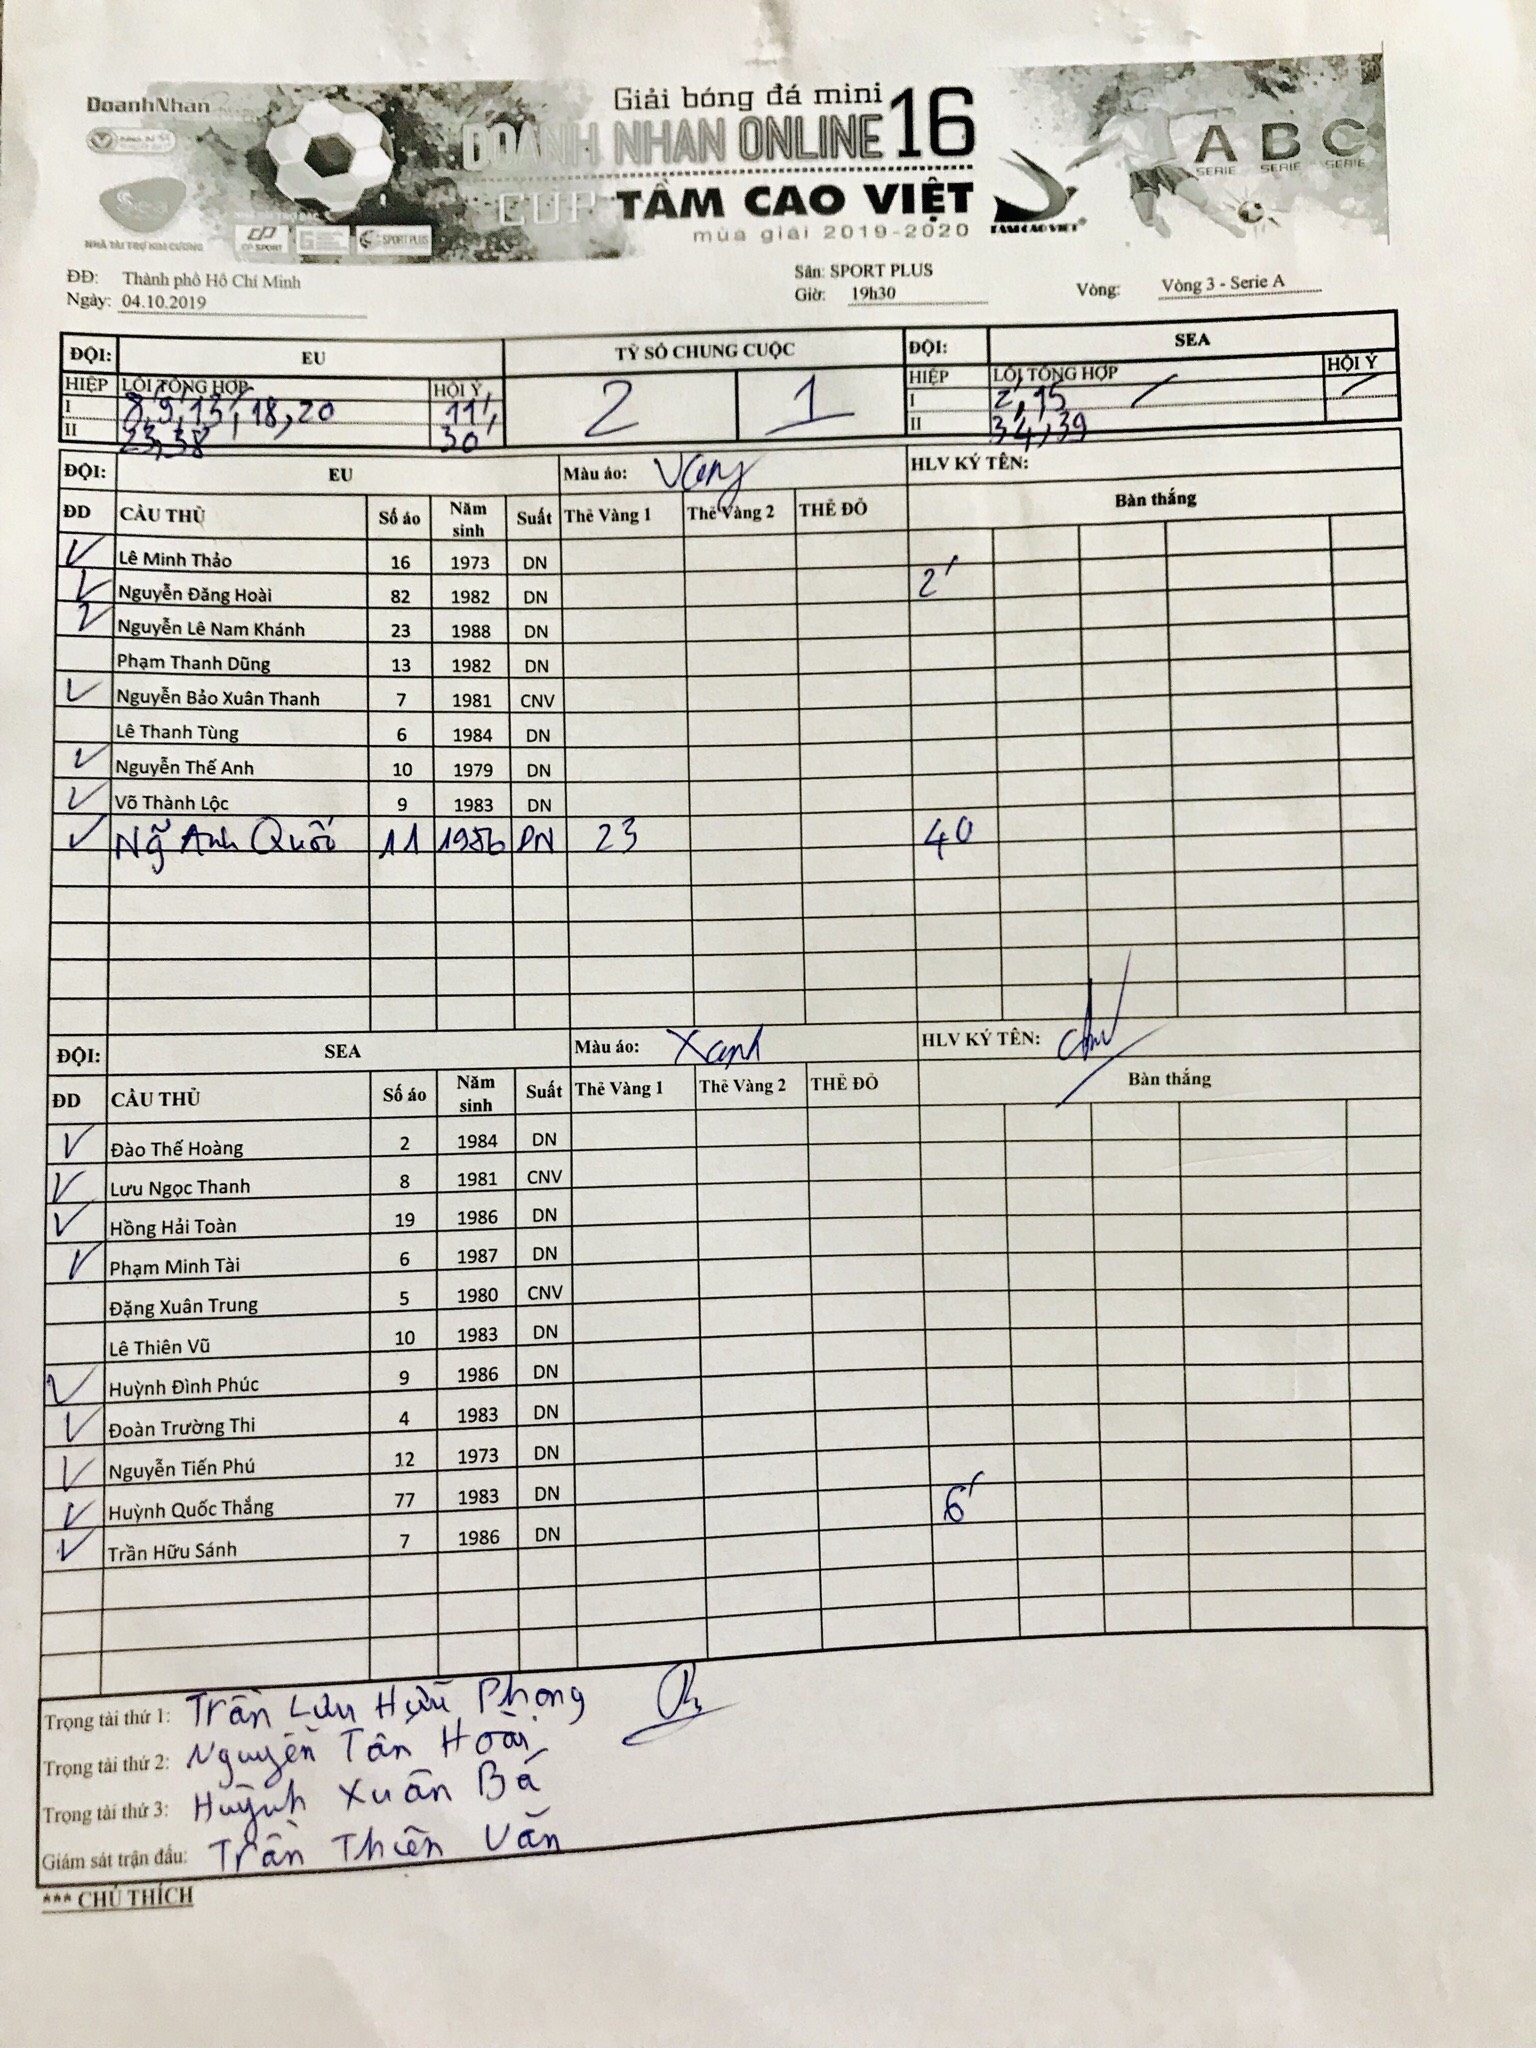 DoanhNhan
Giải bóng đá mini
DOANH NHAN ONLINE 16
CUP TẦM CAO VIỆT
mùa giải 2019-2020
TAMCAOVIET
A B C
SERIE SERIE SERIE
Sea
NHÀ TÀI TRỢ KIM CƯƠNG
CP SPORT
SPORT PLUS
ĐĐ: Thành phố Hồ Chí Minh Sân: SPORT PLUS
Ngày: 04.10.2019 Giờ: 19h30 Vòng: Vòng 3 - Serie A
ĐỘI: EU TỶ SỐ CHUNG CUỘC ĐỘI: SEA
HIỆP LỖI TỔNG HỢP HỘI Ý 2 1 HIỆP LỖI TỔNG HỢP HỘI Ý
I 8, 9, 13, 18, 20 11' I 2', 15
II 23, 38 30' II 34, 39
ĐỘI: EU Màu áo: Vàng HLV KÝ TÊN:
ĐD CẦU THỦ Số áo Năm sinh Suất Thẻ Vàng 1 Thẻ Vàng 2 THẺ ĐỎ Bàn thắng
✓ Lê Minh Thảo 16 1973 DN
✓ Nguyễn Đăng Hoài 82 1982 DN 2'
✓ Nguyễn Lê Nam Khánh 23 1988 DN
Phạm Thanh Dũng 13 1982 DN
✓ Nguyễn Bảo Xuân Thanh 7 1981 CNV
Lê Thanh Tùng 6 1984 DN
✓ Nguyễn Thế Anh 10 1979 DN
✓ Võ Thành Lộc 9 1983 DN
✓ Ng̃ Anh Quốc 11 1986 DN 23 40
ĐỘI: SEA Màu áo: Xanh HLV KÝ TÊN:
ĐD CẦU THỦ Số áo Năm sinh Suất Thẻ Vàng 1 Thẻ Vàng 2 THẺ ĐỎ Bàn thắng
✓ Đào Thế Hoàng 2 1984 DN
✓ Lưu Ngọc Thanh 8 1981 CNV
✓ Hồng Hải Toàn 19 1986 DN
✓ Phạm Minh Tài 6 1987 DN
Đặng Xuân Trung 5 1980 CNV
Lê Thiên Vũ 10 1983 DN
✓ Huỳnh Đình Phúc 9 1986 DN
✓ Đoàn Trường Thi 4 1983 DN
✓ Nguyễn Tiến Phú 12 1973 DN
✓ Huỳnh Quốc Thắng 77 1983 DN 6'
✓ Trần Hữu Sánh 7 1986 DN
Trọng tài thứ 1: Trần Lưu Hữu Phong
Trọng tài thứ 2: Nguyễn Tấn Hoài
Trọng tài thứ 3: Huỳnh Xuân Bá
Giám sát trận đấu: Trần Thiên Văn
*** CHÚ THÍCH